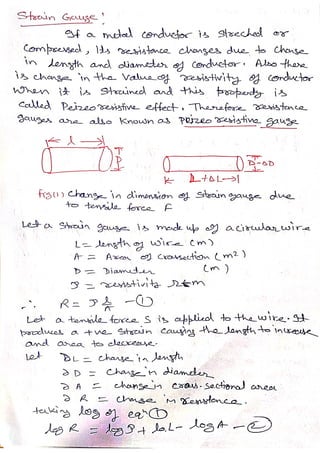 Strain Gauge:
If a metal conductor is streched or
Compressed, its resistance changes due to change
in length and diameter of conductor. Also there
is change in the value of resistivity of conductor
When it is Strained and this property is
Called Peizoresistive effect. Therefore resistance
gauges are also known as peizoresistive gauge
l
D
L+ΔL
D-ΔD
fig(1) Change in dimension of strain gauge due
to tensile force F
Let a strain gauge is made up of a circular wire
L = length of wire (m)
A = Area of crossection (m²)
D = Diameter (m)
ρ = resistivity Ωm
∴ R = ρ L/A —①
Let a tensile force S is applied to the wire. It
produces a +ve strain causing the length to increase
and area to decrease.
Let ∂L = change in length
∂D = change in diameter
∂A = change in cross-sectional area
∂R = change in resistance.
taking log of eqⁿ ①
log R = log ρ + log L - log A —②